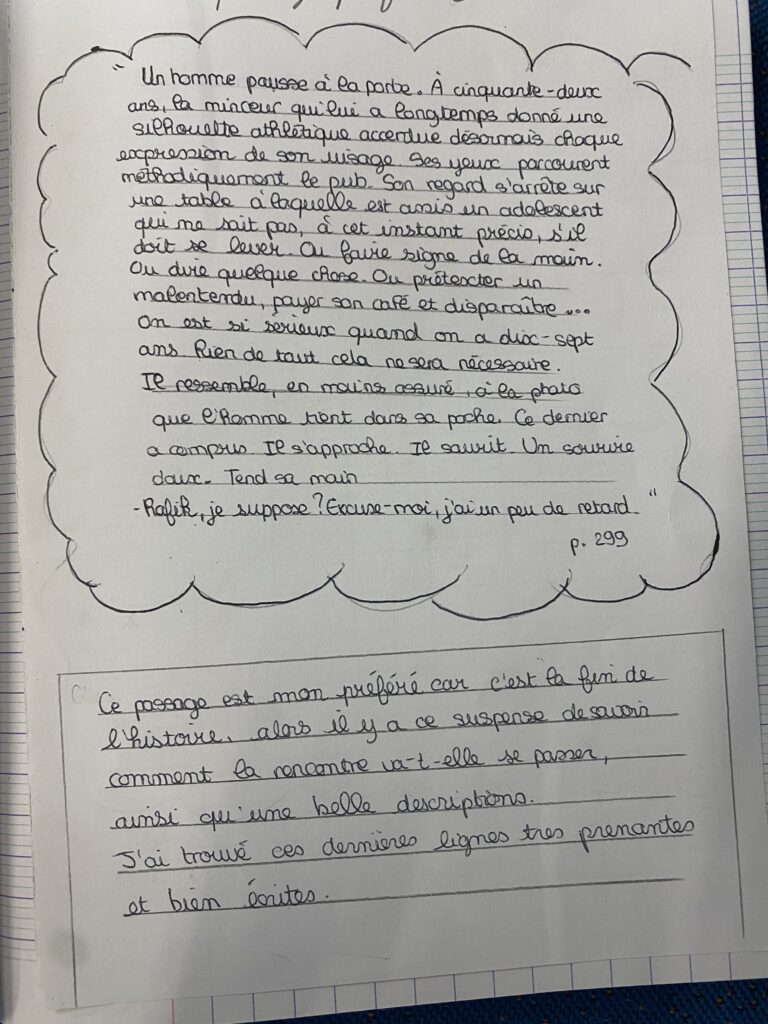 " Un homme pousse à la porte. À cinquante-deux
ans, la minceur qui lui a longtemps donné une
silhouette athlétique accentue désormais chaque
expression de son visage. Ses yeux parcourent
méthodiquement le pub. Son regard s'arrête sur
une table à laquelle est assis un adolescent
qui ne sait pas, à cet instant précis, s'il
doit se lever. Ou faire signe de la main.
Ou dire quelque chose. Ou prétexter un
malentendu, payer son café et disparaître...
On est si sérieux quand on a dix-sept
ans. Rien de tout cela ne sera nécessaire.
Il ressemble, en moins assuré, à la photo
que l'homme tient dans sa poche. Ce dernier
a compris. Il s'approche. Il sourit. Un sourire
doux. Tend sa main
- Rafik, je suppose ? Excuse-moi, j'ai un peu de retard. "
p. 299
Ce passage est mon préféré car c'est la fin de
l'histoire, alors il y a ce suspense de savoir
comment la rencontre va-t-elle se passer,
ainsi qu'une belle descriptions.
J'ai trouvé ces dernières lignes tres prenantes
et bien écrites.